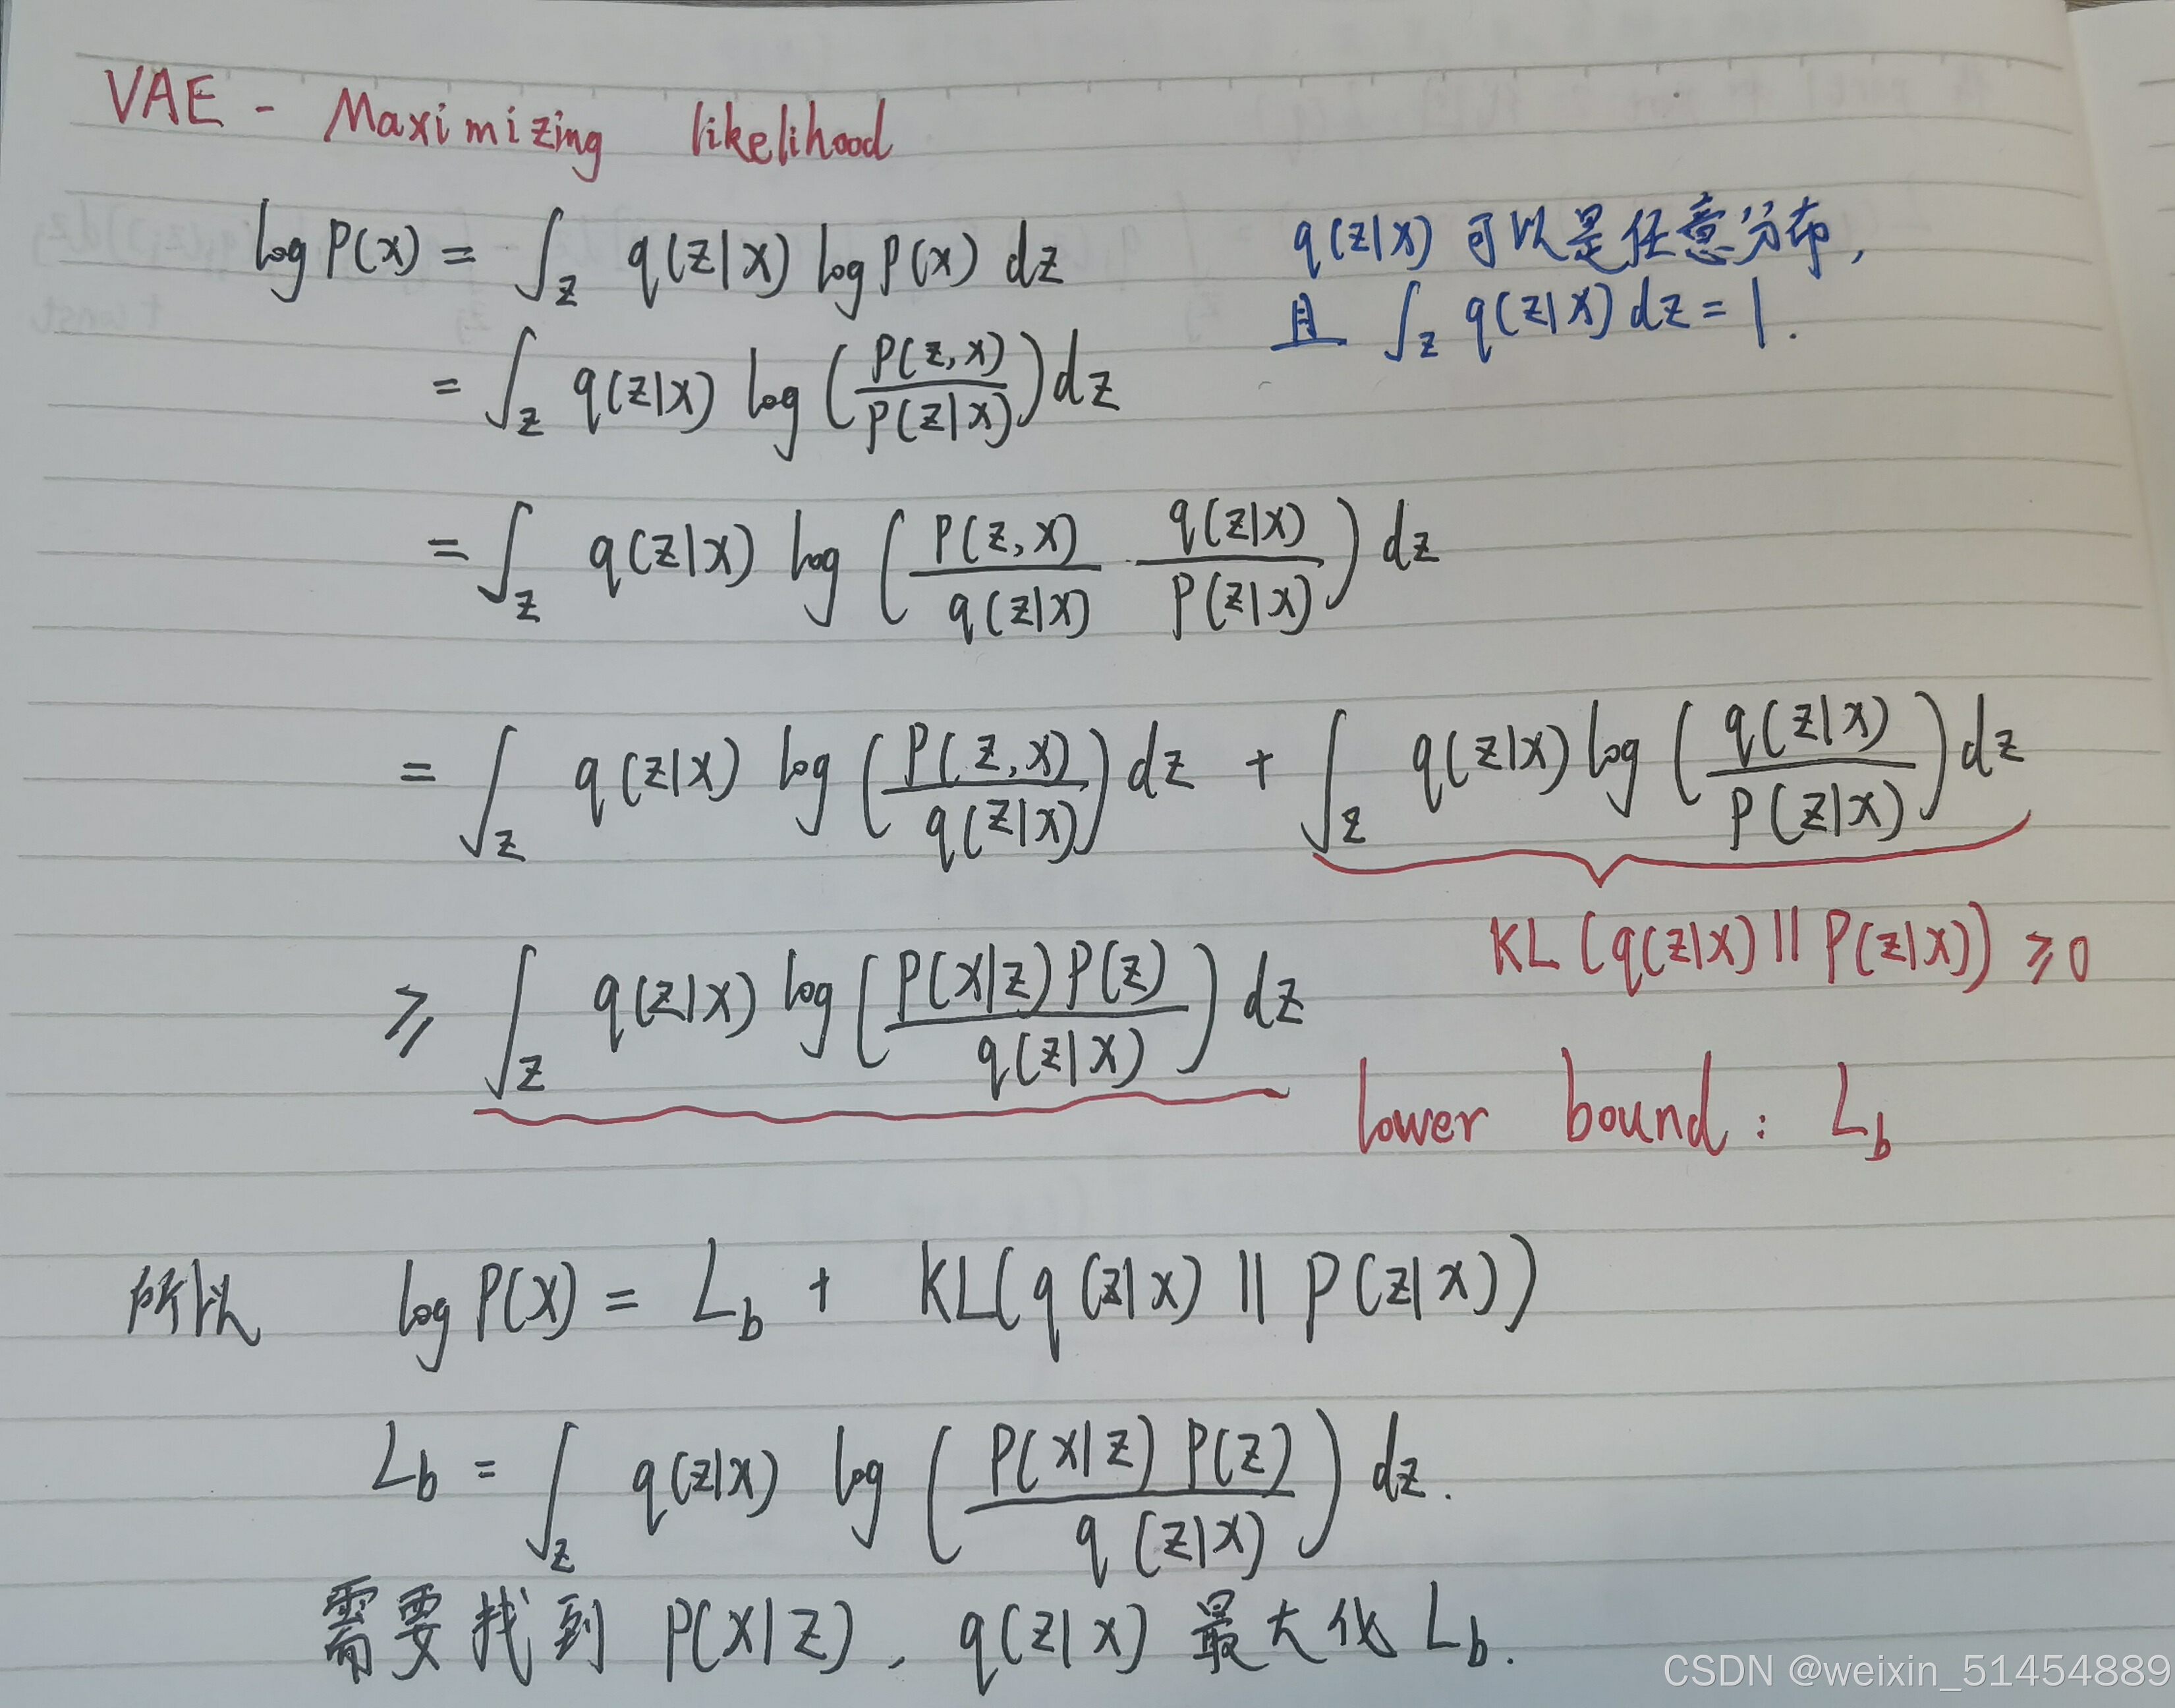 VAE - Maximizing likelihood
log P(x) = ∫_z q(z|x) log P(x) dz
q(z|x) 可以是任意分布,
且 ∫_z q(z|x) dz = 1.
= ∫_z q(z|x) log (P(z,x) / P(z|x)) dz
= ∫_z q(z|x) log (P(z,x) / q(z|x) · q(z|x) / P(z|x)) dz
= ∫_z q(z|x) log (P(z,x) / q(z|x)) dz + ∫_z q(z|x) log (q(z|x) / P(z|x)) dz
KL (q(z|x) || P(z|x)) ≥ 0
≥ ∫_z q(z|x) log (P(x|z) P(z) / q(z|x)) dz
lower bound : L_b
所以 log P(x) = L_b + KL(q(z|x) || P(z|x))
L_b = ∫_z q(z|x) log (P(x|z) P(z) / q(z|x)) dz.
需要找到 P(x|z)、q(z|x) 最大化 L_b.
CSDN @weixin_51454889